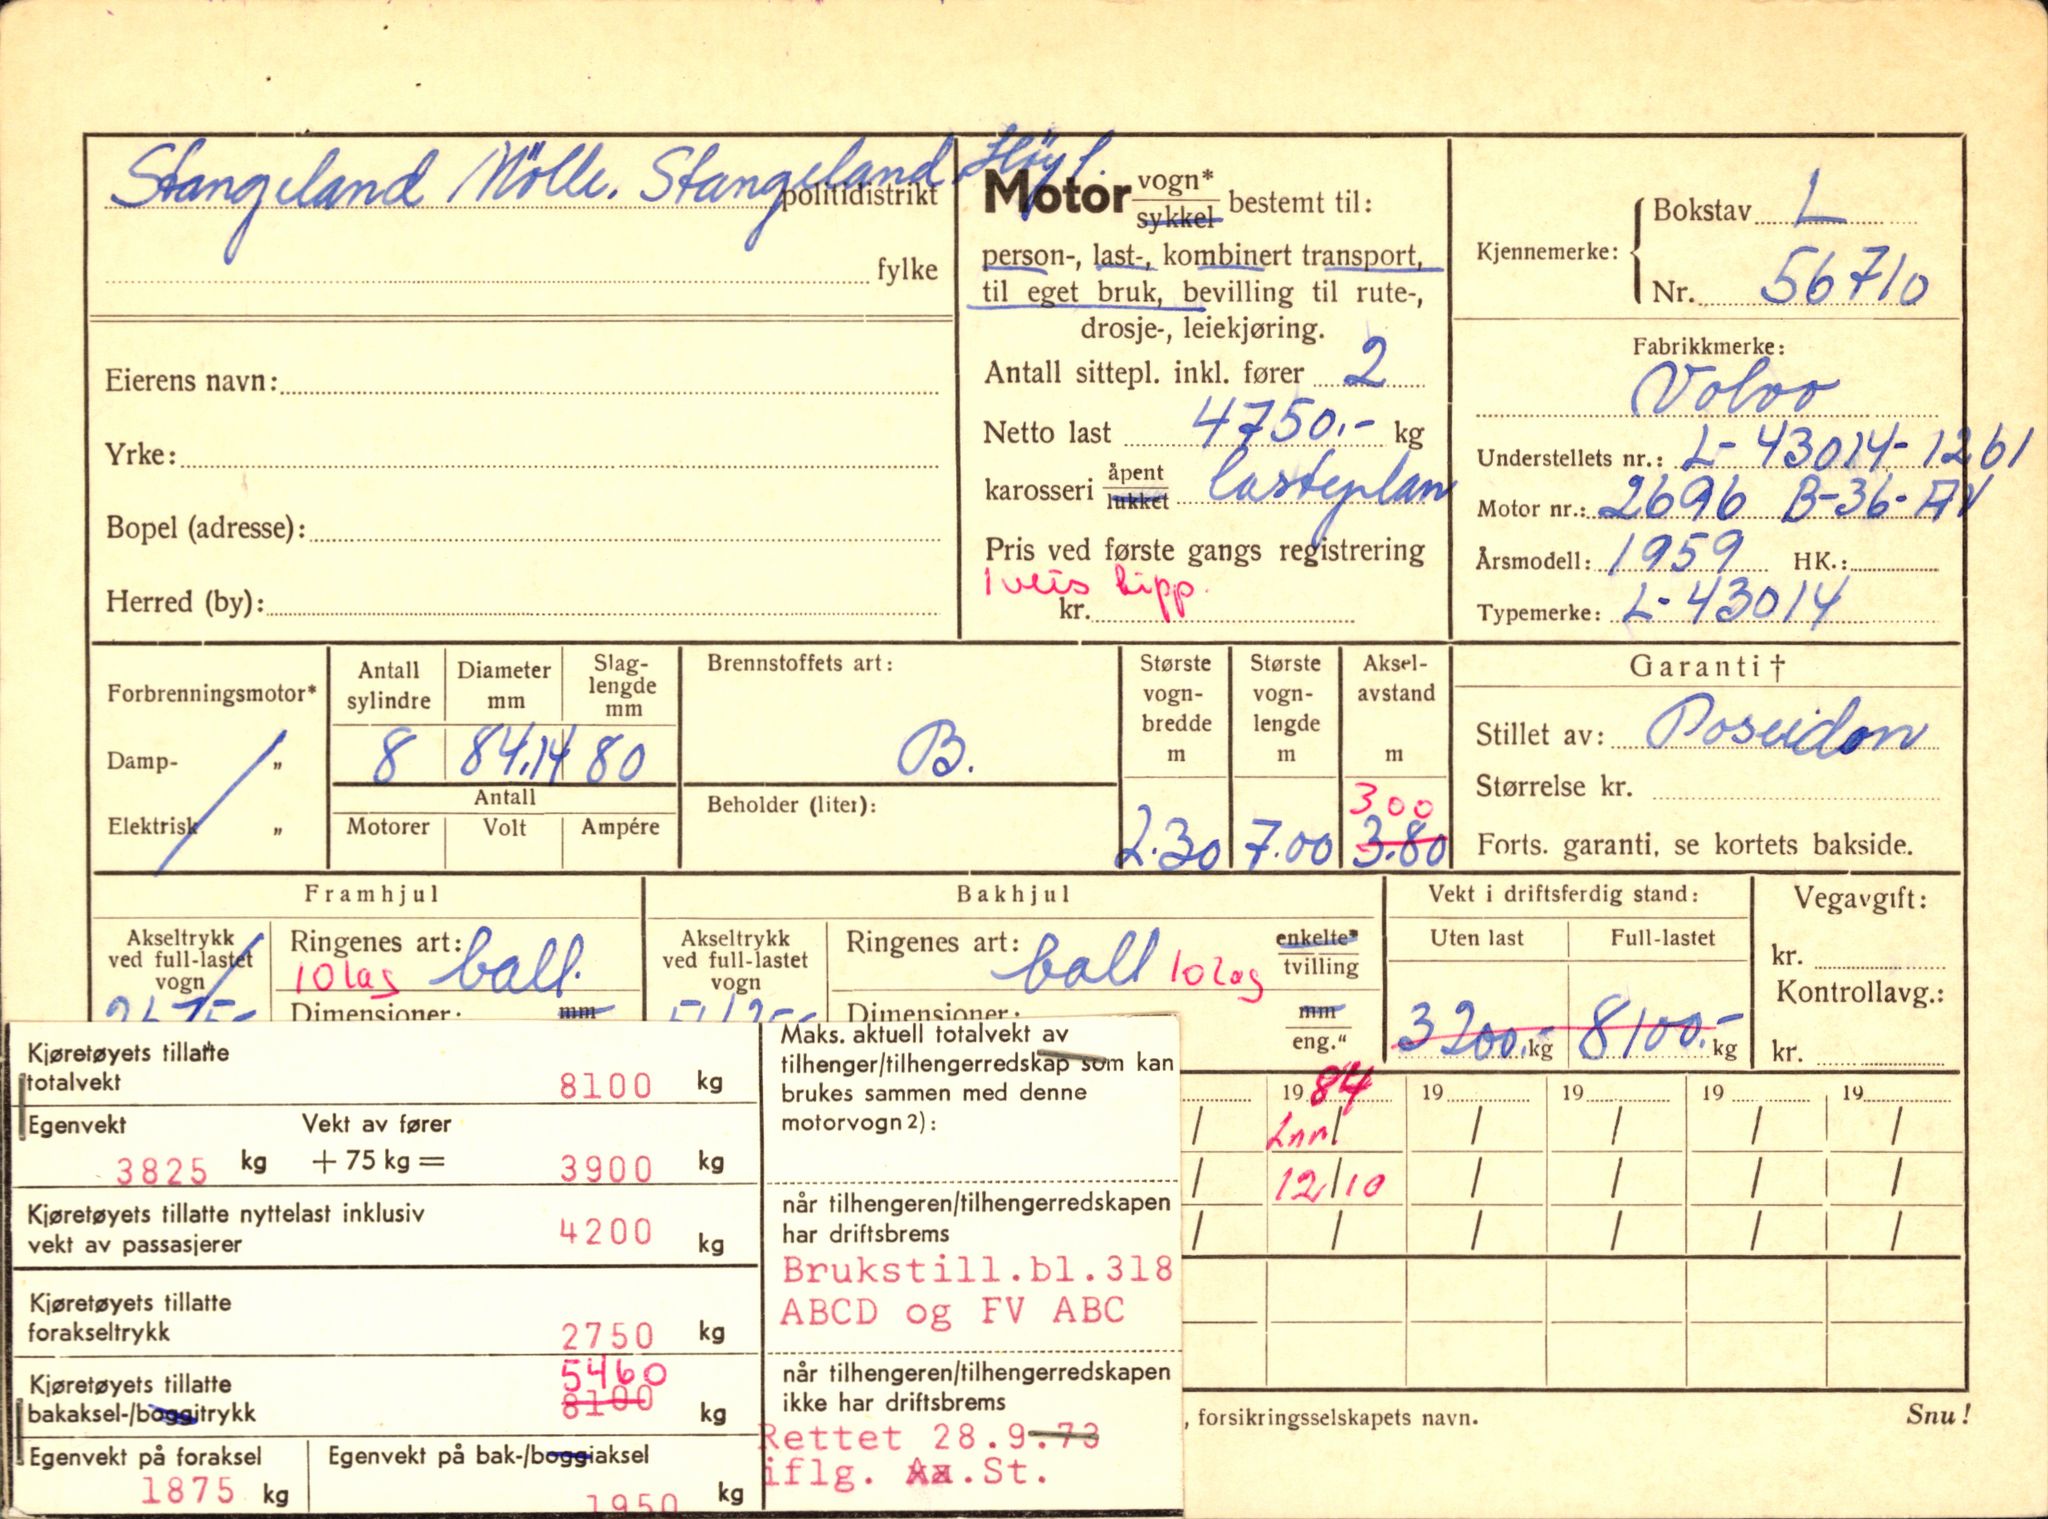 Stangeland Mölle. Stangeland Höyl.
politidistrikt
fylke
Eierens navn:
Yrke:
Bopel (adresse):
Herred (by):
Motor vogn*
sykkel bestemt til:
person-, last-, kombinert transport,
til eget bruk, bevilling til rute-,
drosje-, leiekjøring.
Antall sittepl. inkl. fører 2
Netto last 4750.- kg
karosseri åpent
lukket lasteplan
Pris ved første gangs registrering
1 veis tipp.
kr.
Kjennemerke: Bokstav L
Nr. 56710
Fabrikkmerke:
Volvo
Understellets nr.: L-43014-1261
Motor nr.: 2696 B-36-AV
Årsmodell: 1959 HK.:
Typemerke: L-43014
Forbrenningsmotor*
Damp- „
Elektrisk „
Antall sylindre
Diameter mm
Slag-
lengde
mm
8 84,14 80
Antall
Motorer Volt Ampére
Brennstoffets art:
B.
Beholder (liter):
Største
vogn-
bredde
m
2.30
Største
vogn-
lengde
m
7.00
Aksel-
avstand
m
300
3.80
Garanti †
Stillet av: Poseidon
Størrelse kr.
Forts. garanti, se kortets bakside.
Framhjul
Akseltrykk
ved full-lastet
vogn
Ringenes art:
10 lag ball.
Dimensioner: mm
Bakhjul
Akseltrykk
ved full-lastet
vogn
Ringenes art:
ball 10 lag
enkelte*
tvilling
Dimensioner: mm
eng."
Vekt i driftsferdig stand:
Uten last Full-lastet
3200.- kg 8100.- kg
Vegavgift:
kr.
Kontrollavg.:
kr.
19 84 19 19 19 19
/ Lnr / / / / /
/ 12/10 / / / /
/ / / / / /
, forsikringsselskapets navn.
Snu!
Kjøretøyets tillatte
totalvekt 8100 kg
Egenvekt Vekt av fører
3825 kg + 75 kg = 3900 kg
Kjøretøyets tillatte nyttelast inklusiv
vekt av passasjerer 4200 kg
Kjøretøyets tillatte
forakseltrykk 2750 kg
5460
Kjøretøyets tillatte
bakaksel-/boggitrykk 8100 kg
Egenvekt på foraksel
1875 kg
Egenvekt på bak-/boggiaksel
1950 kg
Maks. aktuell totalvekt av
tilhenger/tilhengerredskap som kan
brukes sammen med denne
motorvogn 2):
når tilhengeren/tilhengerredskapen
har driftsbrems
Brukstill.bl.318
ABCD og FV ABC
når tilhengeren/tilhengerredskapen
ikke har driftsbrems
Rettet 28.9.73
iflg. Aa.St.